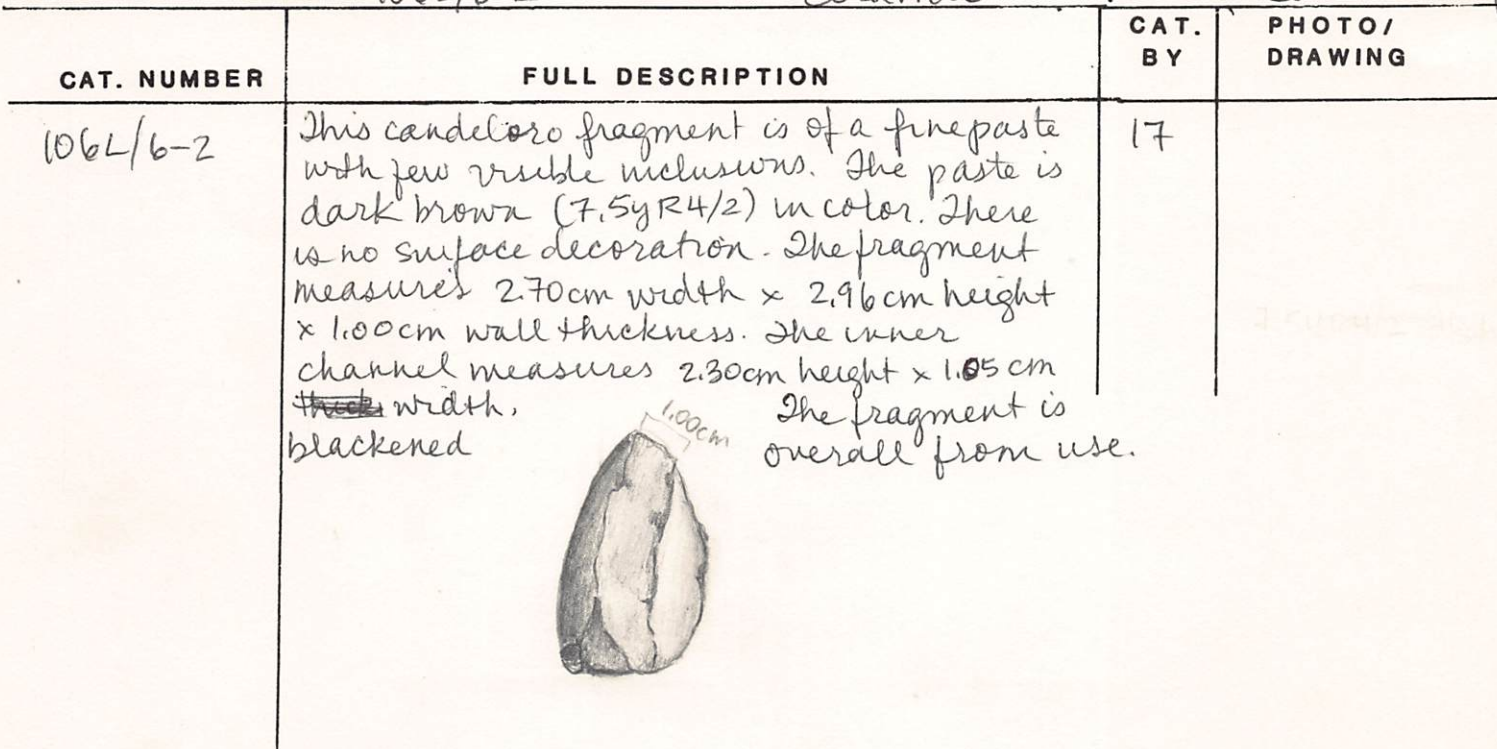 CAT. NUMBER
FULL DESCRIPTION
CAT.
BY
PHOTO/
DRAWING
106L/6-2
This candeloro fragment is of a fine paste
with few visible inclusions. The paste is
dark brown (7.5yR4/2) in color. There
is no surface decoration. The fragment
measures 2.70cm width x 2.96cm height
x 1.00cm wall thickness. The inner
channel measures 2.30cm height x 1.05 cm
thick width. The fragment is
blackened overall from use.
17
1.00cm